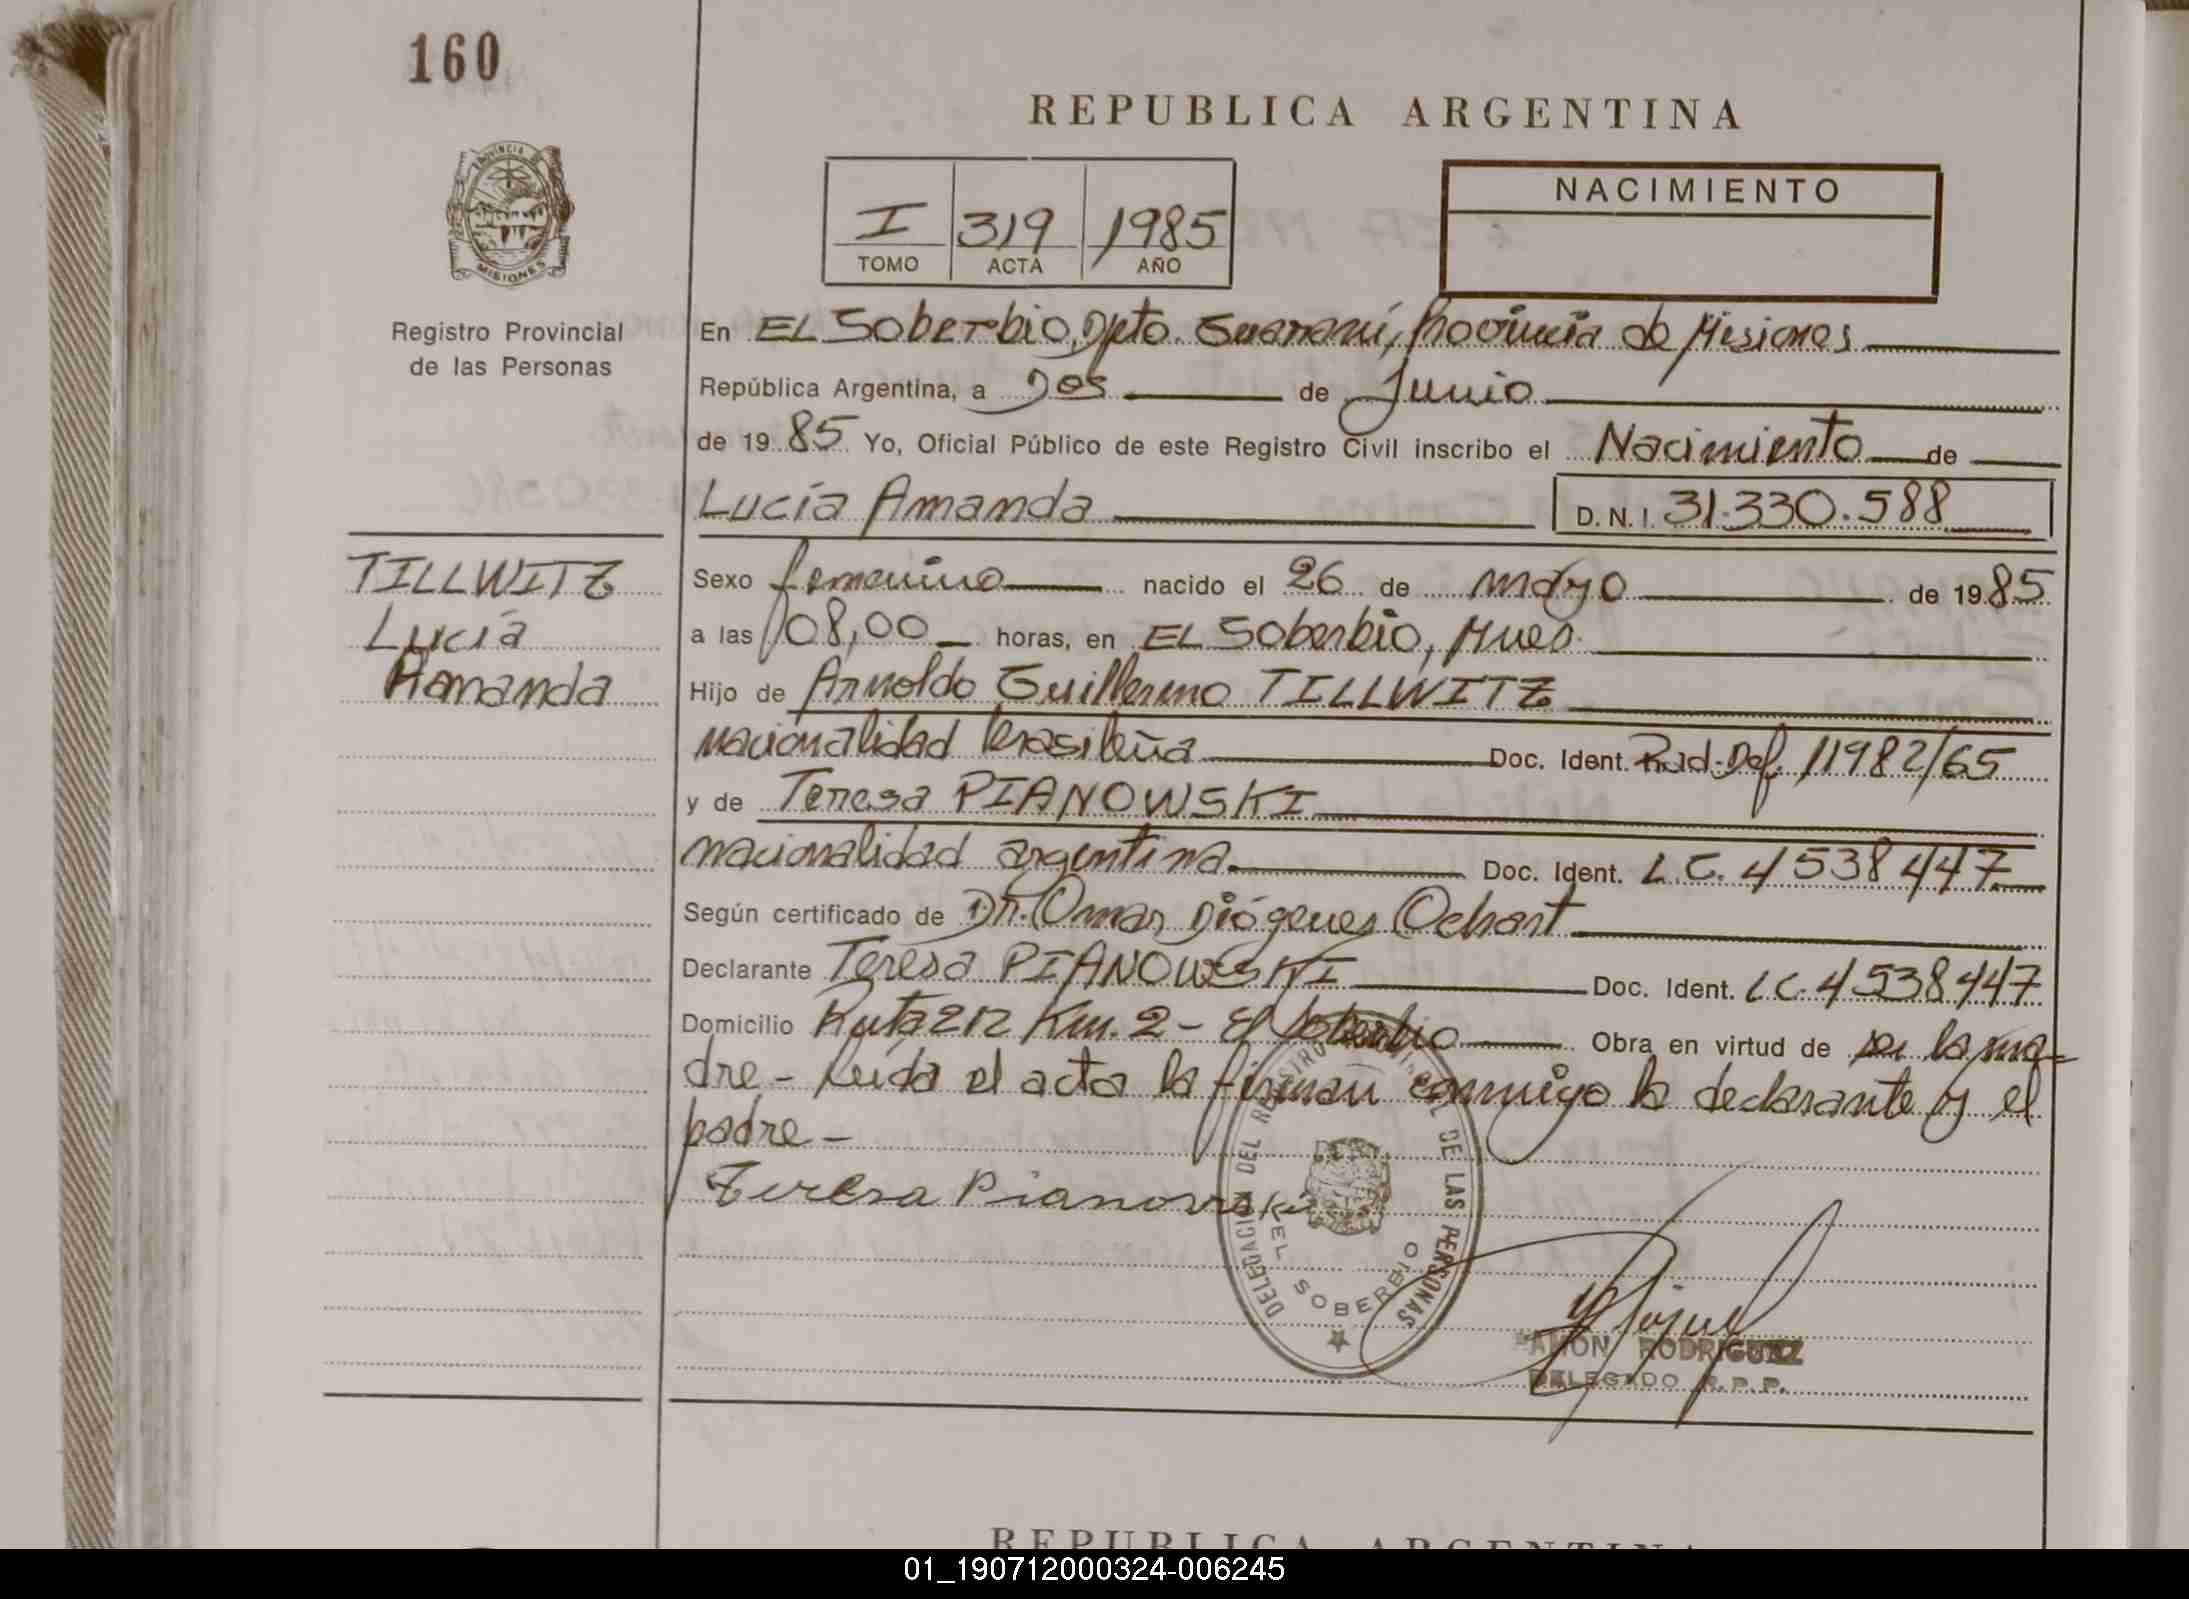 160
REPUBLICA ARGENTINA
PROVINCIA DE
MISIONES
I 319 1985
TOMO ACTA AÑO
NACIMIENTO
Registro Provincial
de las Personas
En EL Soberbio, Dpto. Guaraní, Provincia de Misiones
República Argentina, a Dos de Junio
de 1985 Yo, Oficial Público de este Registro Civil inscribo el Nacimiento de
Lucía Amanda D.N.I. 31.330.588
TILLWITZ
Lucía
Amanda
Sexo femenino nacido el 26 de mayo de 1985
a las 08,00 horas, en EL Soberbio, Mnes.
Hijo de Arnoldo Guillermo TILLWITZ
nacionalidad brasileña Doc. Ident. Rad. Def. 11982/65
y de Teresa PIANOWSKI
nacionalidad argentina. Doc. Ident. L.C. 4538447
Según certificado de Dr. Omar Diógenes Ochart
Declarante Teresa PIANOWSKI Doc. Ident. L.C. 4538447
Domicilio Ruta 212 Km. 2 - El Soberbio Obra en virtud de ser la ma-
dre - Leída el acta la firman conmigo la declarante y el
padre -
Teresa Pianowski
DELEGACION DEL REGISTRO PROVINCIAL DE LAS PERSONAS
EL SOBERBIO
RAMON RODRIGUEZ
DELEGADO R.P.P.
REPUBLICA ARGENTINA
01_190712000324-006245